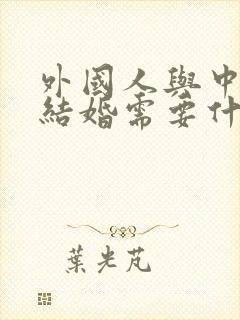 外國人與中
結婚需要什
葉光芃